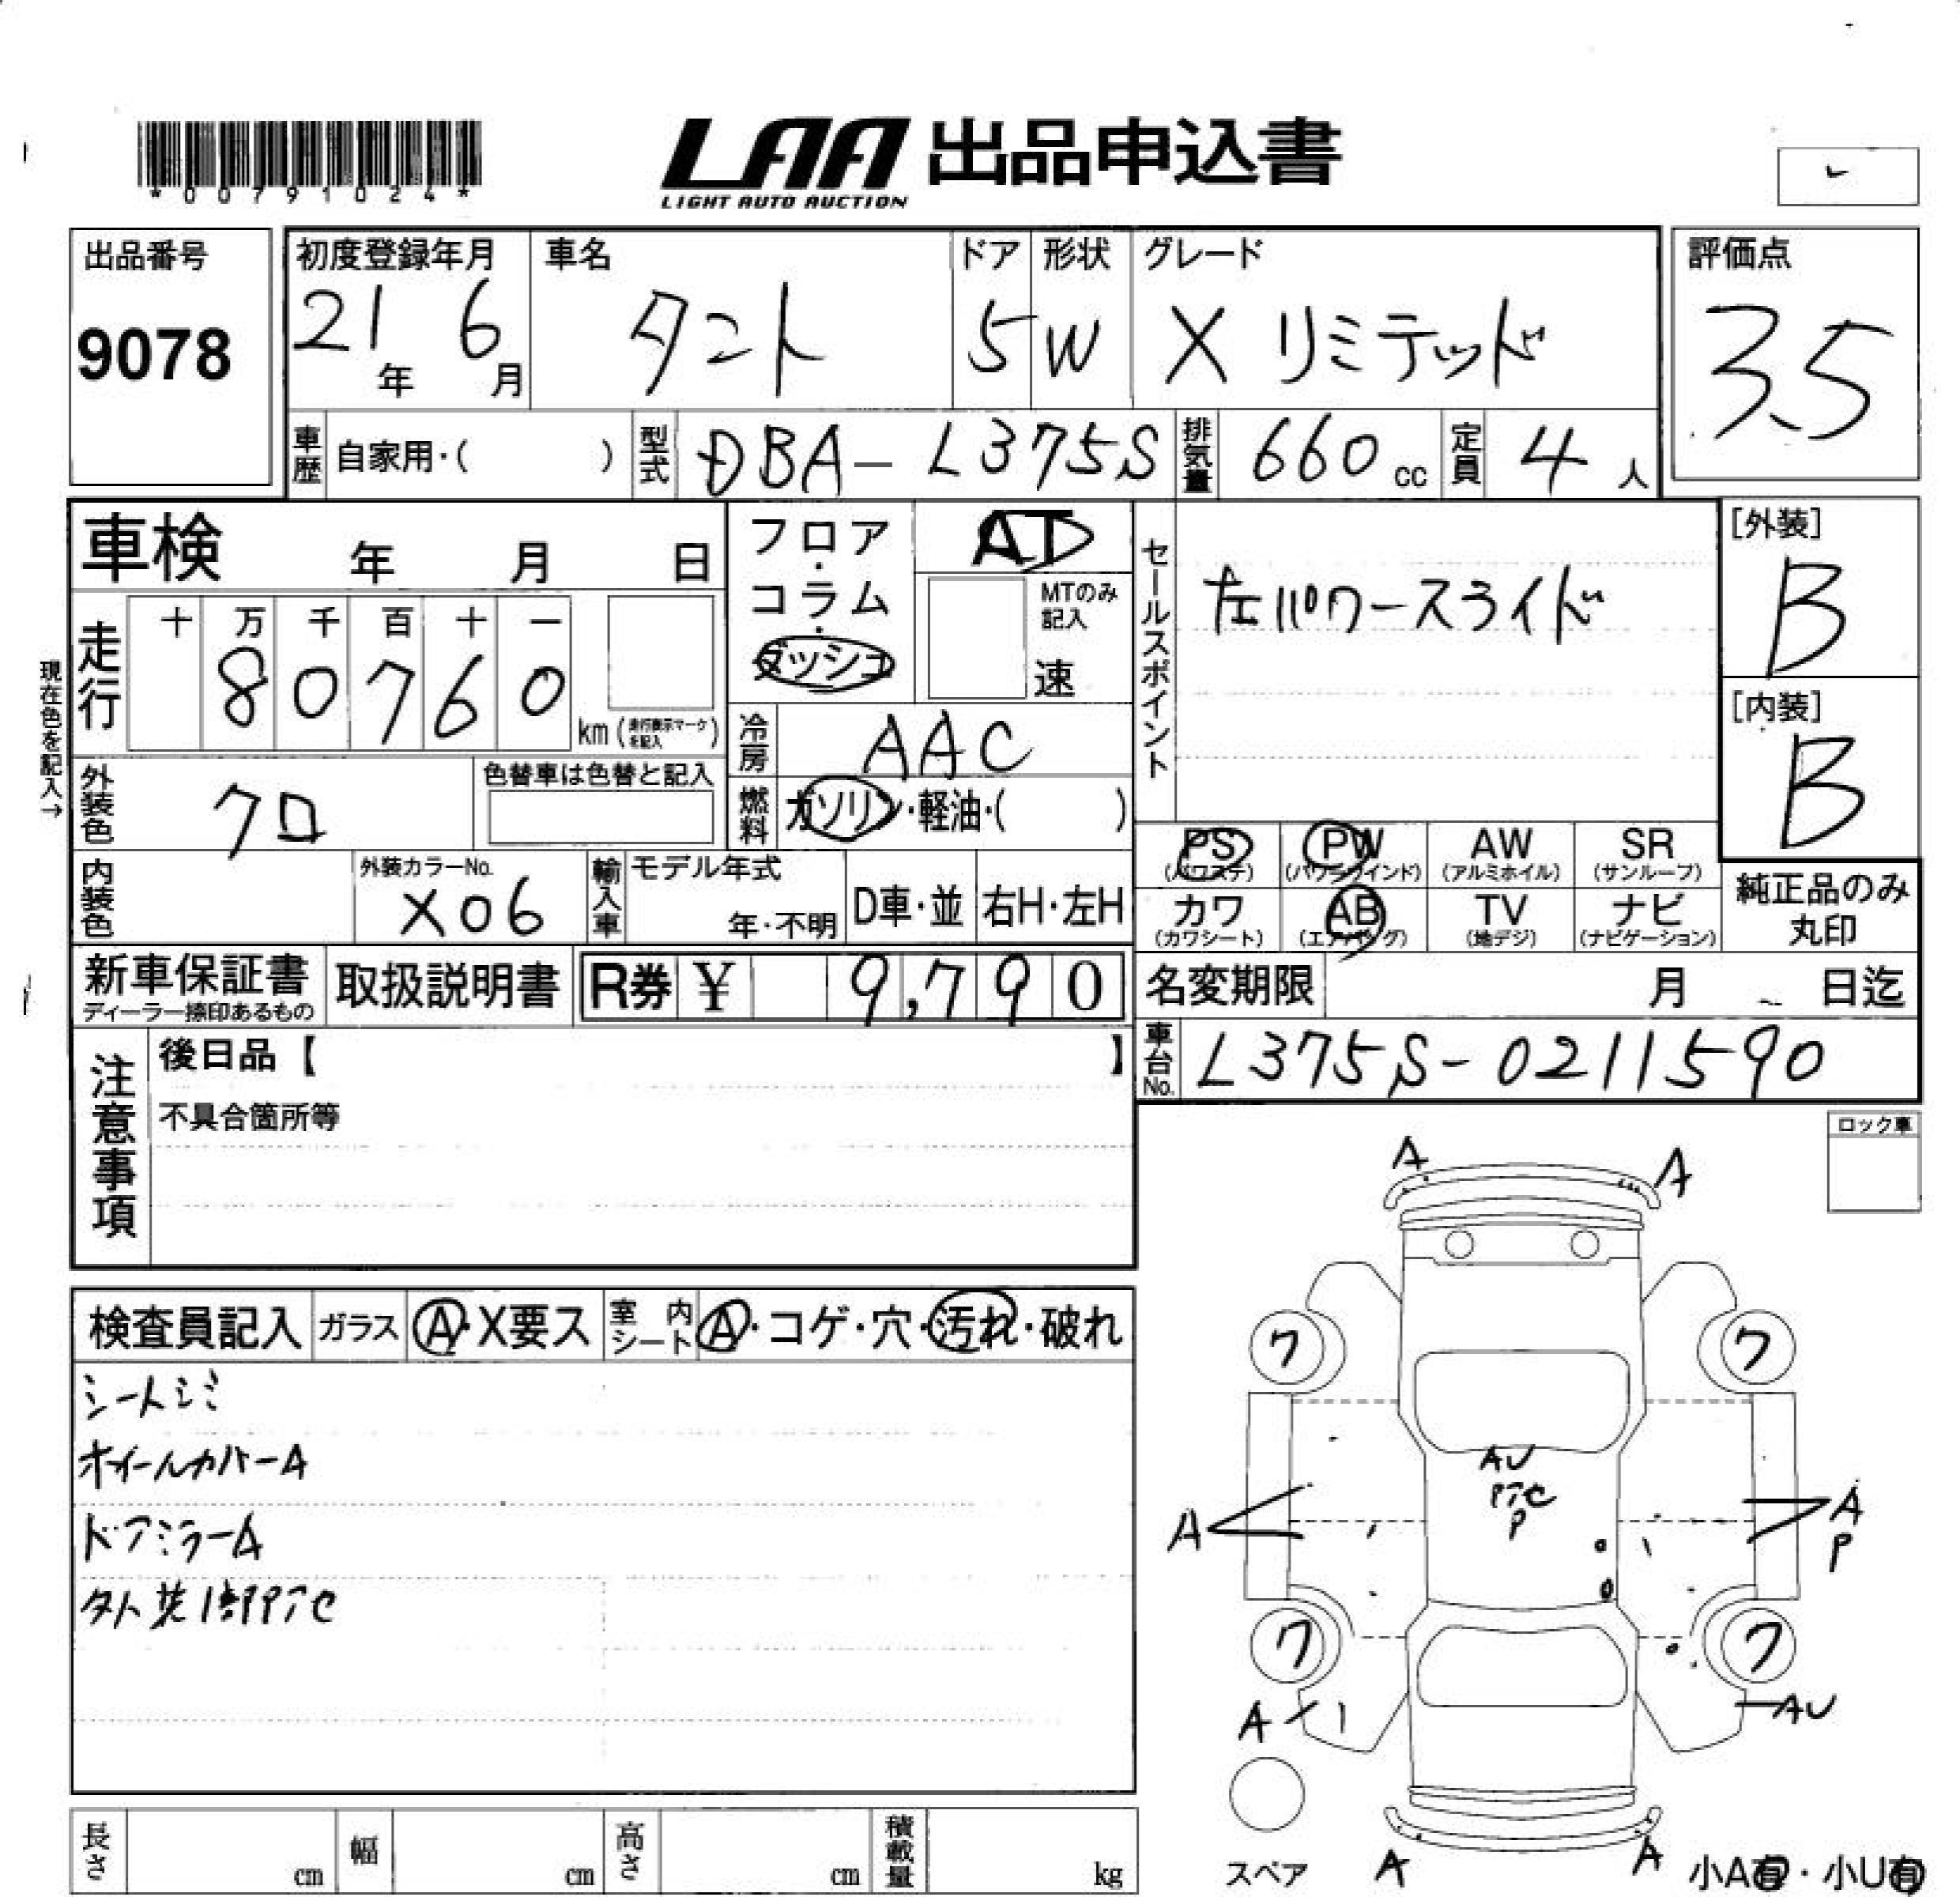 *00791024*
LAA 出品申込書
LIGHT AUTO AUCTION
出品番号
9078
初度登録年月
21年 6月
車名
タント
ドア
5
形状
W
グレード
X リミテッド
評価点
3.5
車歴 自家用・( )
型式 DBA-L375S
排気量 660cc
定員 4人
車検 年 月 日
現在色を記入→
走行
十 万 千 百 十 一
8 0 7 6 0
km (走行表示マークを記入)
フロア・コラム・ダッシュ
AT
MTのみ記入
速
冷房 AAC
燃料 ガソリン・軽油・( )
外装色 クロ
色替車は色替と記入
内装色
外装カラーNo.
X06
輸入車
モデル年式
年・不明
D車・並
右H・左H
セールスポイント
左パワースライド
[外装]
B
[内装]
B
PS
(パワステ)
PW
(パワーウインド)
AW
(アルミホイル)
SR
(サンルーフ)
カワ
(カワシート)
AB
(エアバッグ)
TV
(地デジ)
ナビ
(ナビゲーション)
純正品のみ
丸印
新車保証書
ディーラー捺印あるもの
取扱説明書
R券 ¥ 9,790
名変期限 月 日迄
車台No. L375S-0211590
注意事項
後日品【 】
不具合箇所等
ロック車
検査員記入
ガラス A・X要ス
室内シート A・コゲ・穴・汚れ・破れ
シートシミ
ホイールカバーA
ドアミラーA
A
A
ワ
ワ
AU
P
A
A
P
ワ
ワ
A
AU
スペア
A
A
小A有・小U有
長さ cm
幅 cm
高さ cm
積載量 kg